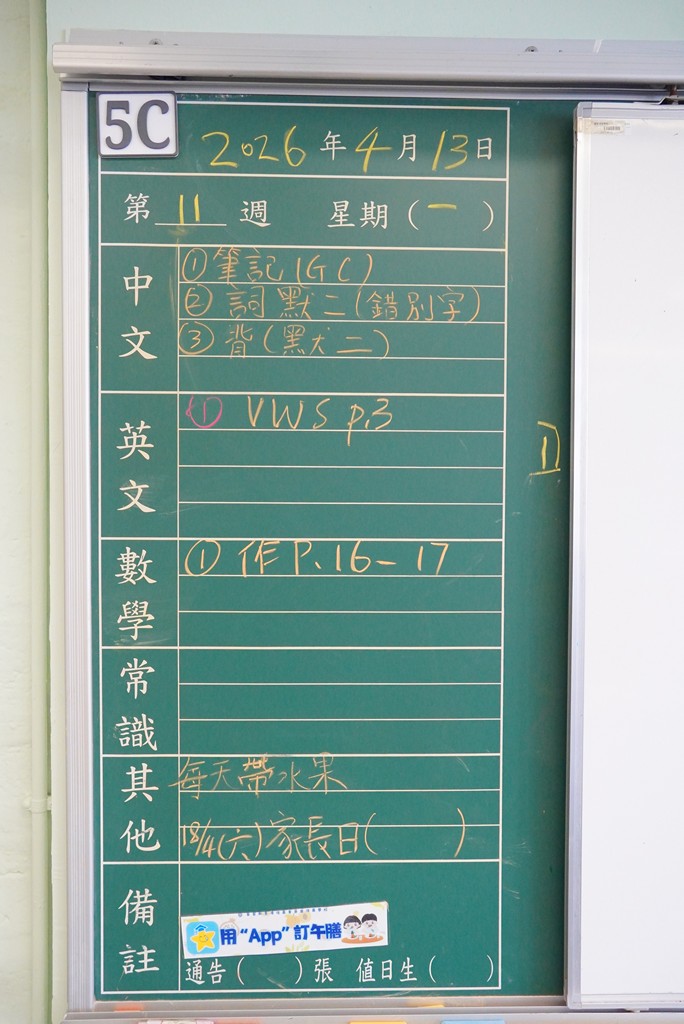 5C
2026年4月13日
第 11 週 星期(一)
中文
①筆記(GC)
②詞默二(錯別字)
③背(默二)
英文
① VWS p.3
數學
①作P.16-17
常識
其他
每天帶水果
18/4(六)家長日( )
備註
用“App”訂午膳
通告( )張 值日生( )